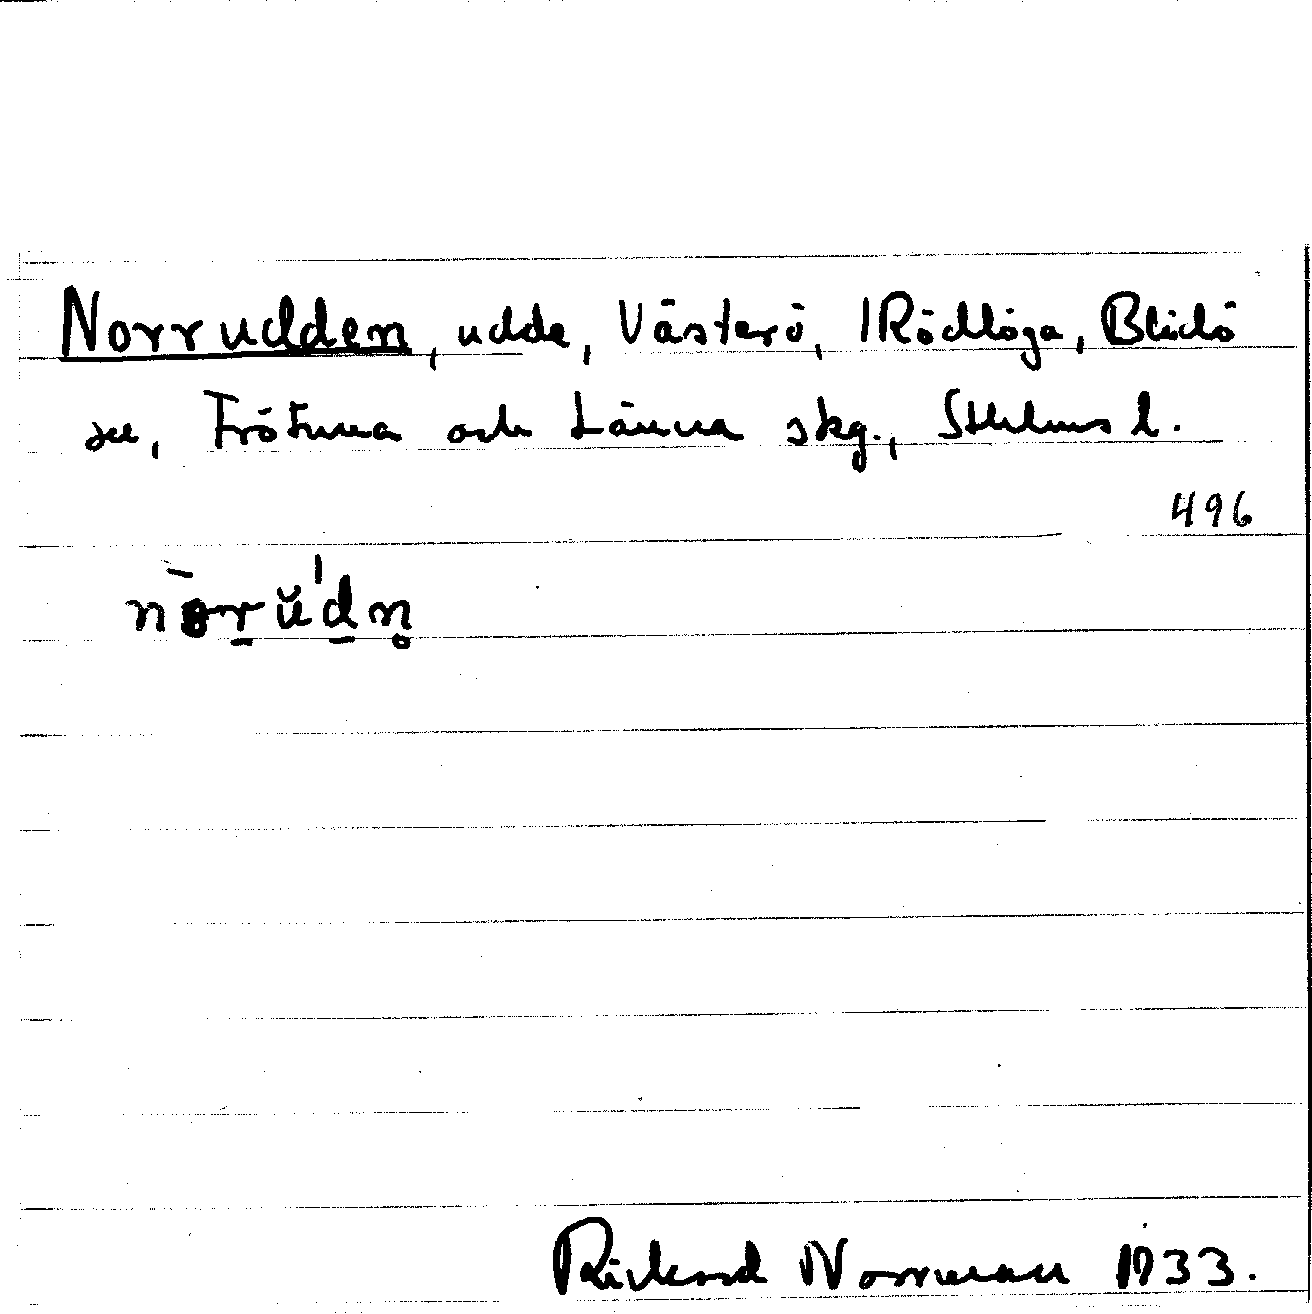 Norrudden, udde, Västerö, Rödlöga, Blidö
sn, Frötuna och Länna skg., Sthlms l.
496
norŭdn̥
Rickard Norrman 1933.